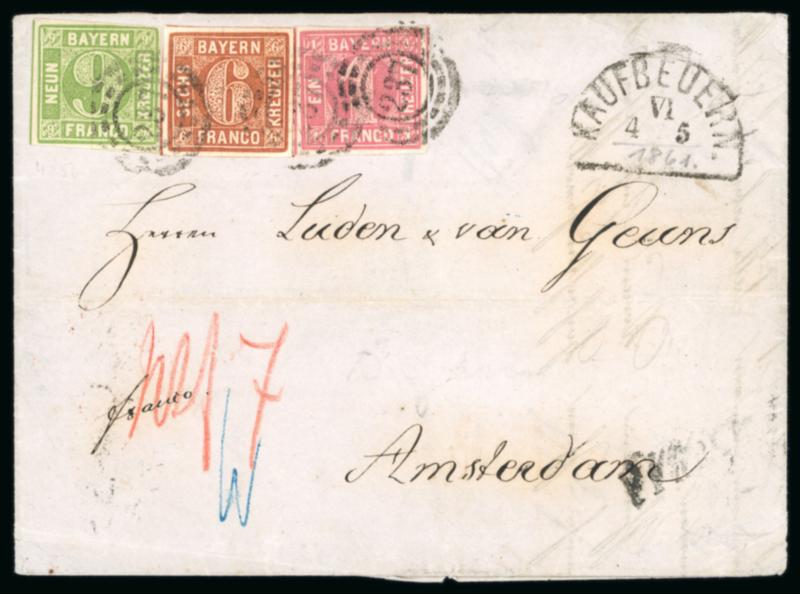 BAYERN
NEUN
9
KREUZER
FRANCO
BAYERN
SECHS
6
KREUZER
FRANCO
BAYERN
EIN
FRANCO
KAUFBEUERN.
VI
4 5
1861.
Herren Luden & van Geuns
7
franco.
Amsterdam